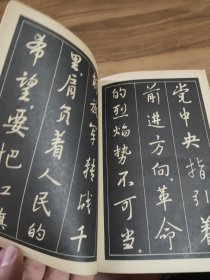 党中央指引着
前进方向革命
的烈焰势不可当。
放军转战千
里,肩负着人民的
希望,要把红旗